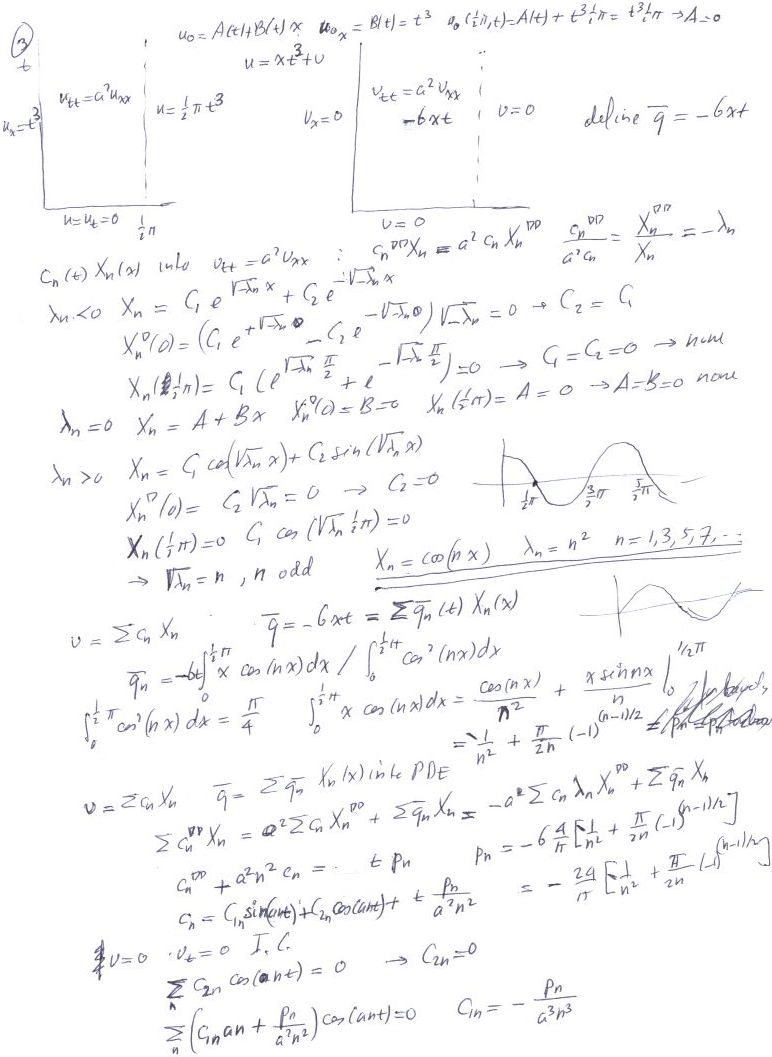 ③
u₀ = A(t)+B(t)x   u₀ₓ = B(t) = t³   u₀(½π,t)=A(t)+t³½π = t³½π → A=0
u = xt³+υ
t
uₓ=t³   u_tt=a²uₓₓ   u=½πt³
υₓ=0   υ_tt=a²υₓₓ   υ=0
-6xt
define q̄ = -6xt
u=u_t=0   ½π
υ=0
cₙ(t) Xₙ(x) into υ_tt=a²υₓₓ : cₙ''Xₙ = a²cₙXₙ''   cₙ''/(a²cₙ) = Xₙ''/Xₙ = -λₙ
λₙ<0   Xₙ = C₁e^(√-λₙ x) + C₂e^(-√-λₙ x)
Xₙ'(0) = (C₁e^(+√-λₙ 0) - C₂e^(-√-λₙ 0))√-λₙ = 0 → C₂ = C₁
Xₙ(½π) = C₁(e^(√-λₙ π/2) + e^(-√-λₙ π/2)) = 0 → C₁=C₂=0 → none
λₙ=0   Xₙ = A+Bx   Xₙ'(0)=B=0   Xₙ(½π)=A=0 → A=B=0 none
λₙ>0   Xₙ = C₁cos(√λₙ x)+C₂sin(√λₙ x)
Xₙ'(0) = C₂√λₙ = 0 → C₂=0
½π   3/2π   5/2π
Xₙ(½π)=0   C₁cos(√λₙ ½π)=0
→ √λₙ = n, n odd   Xₙ = cos(nx)   λₙ=n²   n=1,3,5,7,...
υ = Σcₙ Xₙ   q̄ = -6xt = Σq̄ₙ(t) Xₙ(x)
q̄ₙ = -6t∫₀^(½π) x cos(nx)dx / ∫₀^(½π) cos²(nx)dx
∫₀^(½π) cos²(nx)dx = π/4   ∫₀^(½π) x cos(nx)dx = cos(nx)/n² + x sin nx/n |₀^(1/2π)
= -1/n² + π/2n (-1)^((n-1)/2)
υ=ΣcₙXₙ   q̄ = Σq̄ₙ Xₙ(x) into PDE
Σcₙ''Xₙ = a²ΣcₙXₙ'' + Σq̄ₙXₙ = -a²ΣcₙλₙXₙ'' + Σq̄ₙXₙ
cₙ'' + a²n²cₙ = t pₙ   pₙ = -6 4/π [-1/n² + π/2n (-1)^((n-1)/2)]
cₙ = C₁ₙ sin(ant)+C₂ₙ cos(ant)+ t pₙ/(a²n²)   = - 24/π [-1/n² + π/2n (-1)^((n-1)/2)]
υ=0   υ_t=0   I.C.
Σₙ C₂ₙ cos(ant) = 0 → C₂ₙ=0
Σₙ (C₁ₙ an + pₙ/(a²n²)) cos(ant)=0   C₁ₙ = - pₙ/(a³n³)